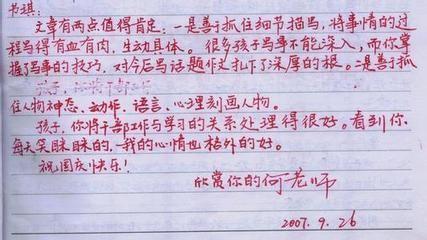 书琪:
文章有两点值得肯定:一是善于抓住细节描写,将事情的过
程写得有血有肉,生动具体。很多孩子写事不能深入,而你掌
握了写事的技巧,对今后写话题作文扎下了深厚的根。二是善于抓
住人物神态、动作、语言、心理刻画人物。
孩子,你将干部工作与学习的关系处理得很好。看到你
每天笑眯眯的,我的心情也格外的好。
祝国庆快乐!
欣赏你的何老师
2007.9.26